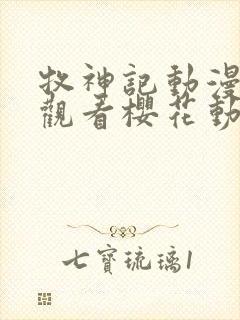 牧神記動漫
觀看櫻花動
七寶琉璃1